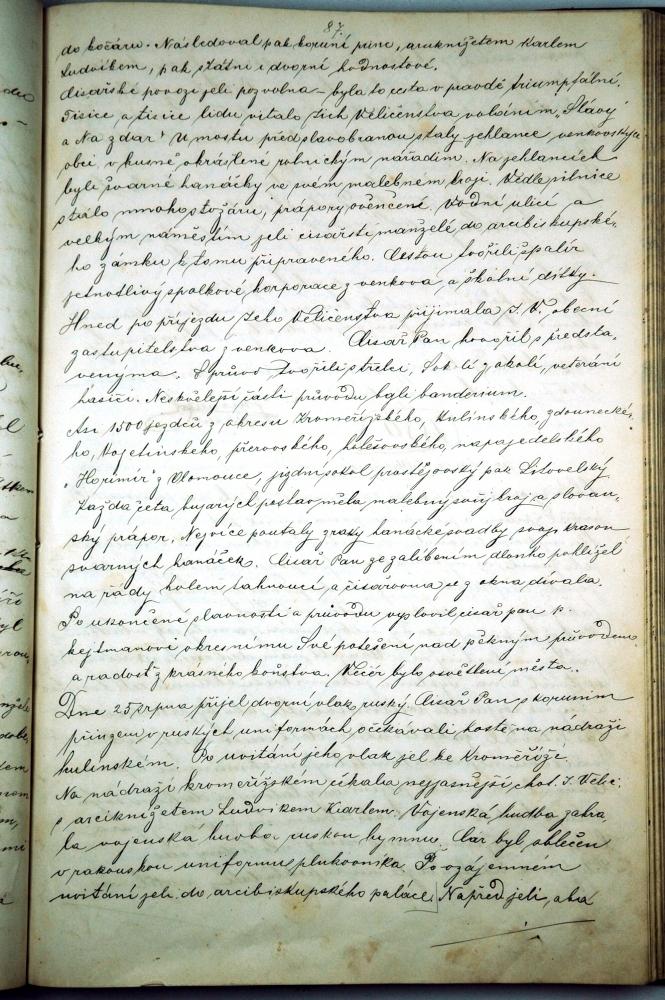 87.
do kočáru. Následoval pak korunní princ, arciknížetem Karlem
Ludvíkem, pak státní i dvorní hodnostové.
Císařské povozi jeli pozvolna – byla to cesta v pravdě triumpfální.
Tisíce a tisíce lidu vítalo Jich Veličenstva voláním „Slávy"
a Na zdar! U mostu před slavobranou staly jehlance venkovských
obcí vkusně okrášlené rolnickým nářadím. Na jehlancích
byli švarné hanáčky ve svém malebném kroji. Vedle silnice
stálo mnoho stožárů, prápory ověnčené. Vodní ulicí a
velkým náměstím jeli císařští manželé do arcibiskupské-
ho zámku k tomu připraveného. Cestou tvořili špalír
jednotlivý spolkové korporace z venkova a školní dítky.
Hned po příjezdu Jeho Veličenstva přijímala J. V. obecní
zastupitelstva z venkova. Císař Pan hovořil s předsta-
venýma. průvod tvořili střelci, Sokoli z okolí, veteráni
hasiči. Neskvělejší částí průvodu byli banderium.
Asi 1500 jezdců z okresu Kroměřížského, Hulínského, zdounecké-
ho, Vojetínského, přerovského, holešovského, napajedelského
„Horimír" z Olomouce, jízdní sokol prostějovský pak Litovelský
Každá četa bujarých postav měla malebný svůj kroj a slovan-
ský prápor. Nejvíce poutaly zraky hanácké svadby svojí krásou
švarných hanáček. Císař Pan ze zalíbením dlouho pohlížel
na řády kolem tahnoucí a císařovna se z okna dívala.
Po ukončené slavnosti a průvodu vyslovil císař pan p.
hejtmanovi okresnímu Své potěšení nad pěkným průvodem
a radost z krásného koňstva. Večer bylo osvětlení města.
Dne 25 srpna přijel dvorní vlak ruský. Císař Pan s korunním
princem v ruských uniformách očekávali hostě na nádraží
hulínském. Po uvítání jeho vlak jel ke Kroměříži.
Na nádraží kroměřížském čekala nejjasnější chot. J. Velič.
s arciknížetem Ludvíkem Karlem. Vojenská hudba zahrá
la vojenská hudba ruskou hymnu. Car byl oblečen
v rakouskou uniformu plukovníka. Po vzájemném
uvítání jeli do arcibiskupského paláce. Napřed jeli, aba